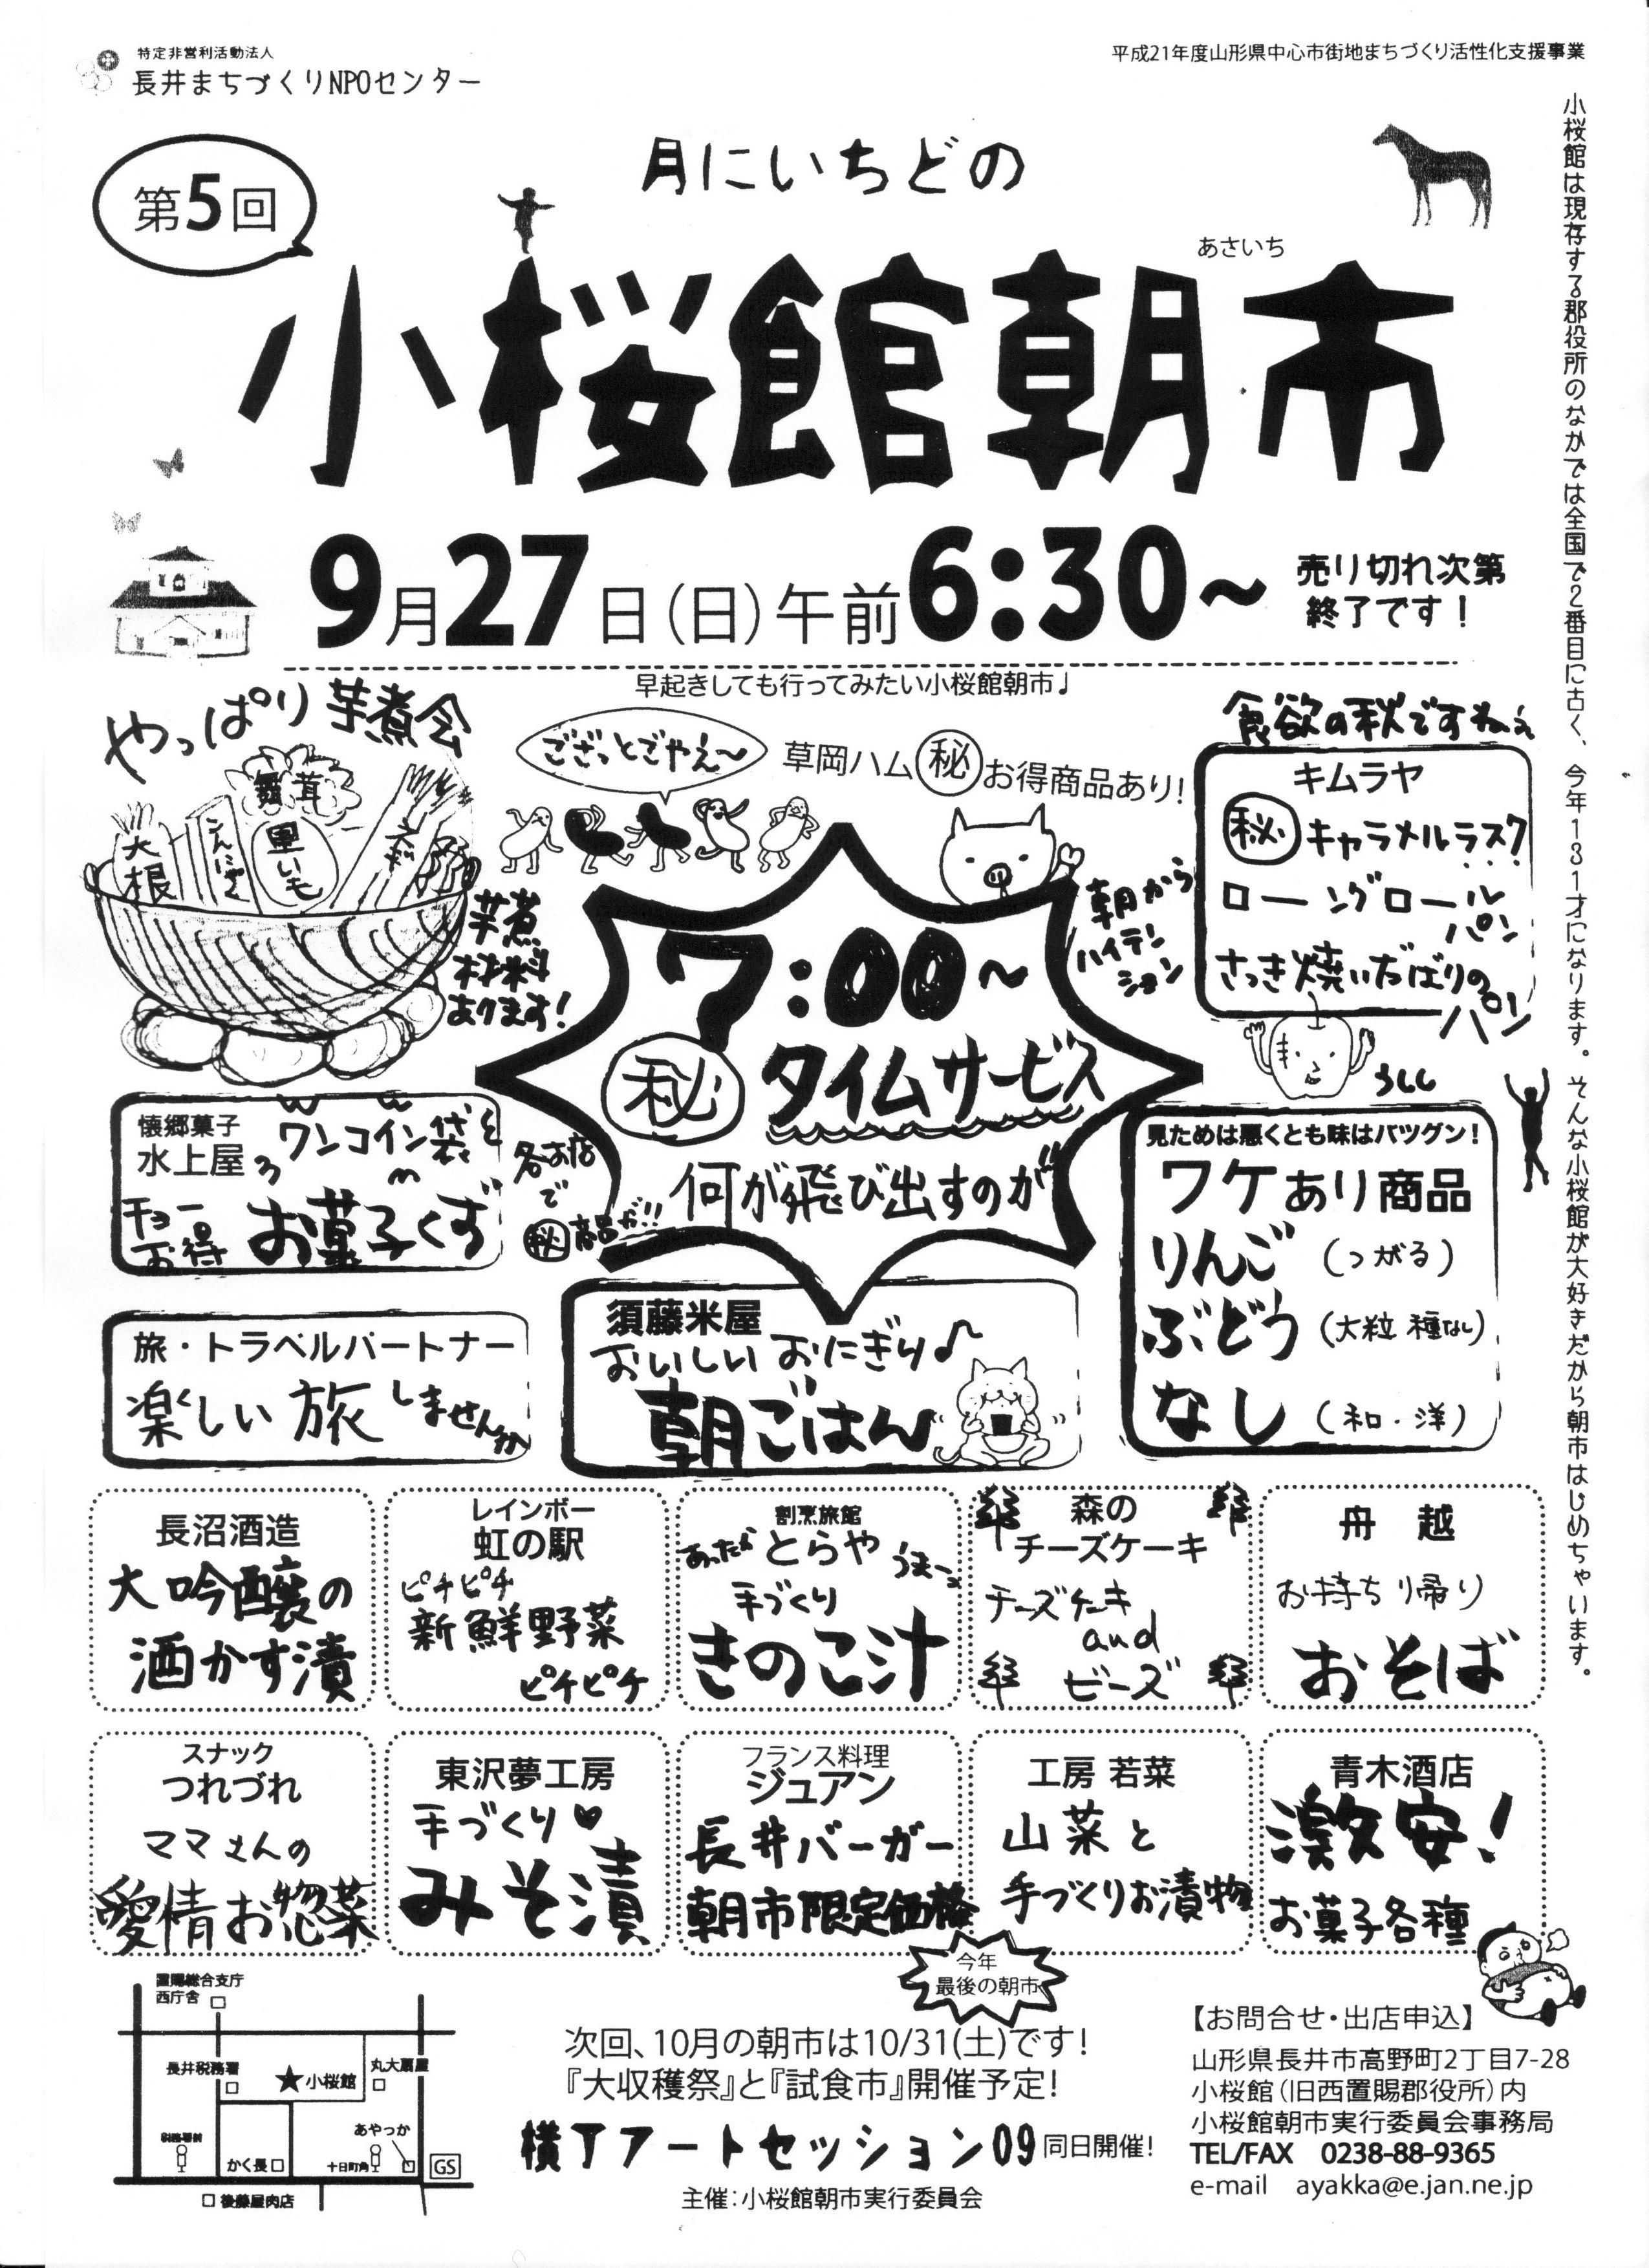 特定非営利活動法人
長井まちづくりNPOセンター
平成21年度山形県中心市街地まちづくり活性化支援事業
小桜館は現存する郡役所のなかでは全国で2番目に古く、今年131才になります。そんな小桜館が大好きだから朝市はじめちゃいます。
第5回
月にいちどの
あさいち
小桜館朝市
9月27日(日)午前6:30~
売り切れ次第
終了です!
早起きしても行ってみたい小桜館朝市♩
やっぱり芋煮会
舞茸
大根
こんにゃく
里いも
ネギ
芋煮
材料
あります!
ござっとごやえ~
草岡ハム㊙お得商品あり!
朝から
ハイテン
ション
食欲の秋ですねぇ
キムラヤ
㊙キャラメルラスク
ローングロール
パン
さっき焼いたばりの
パン
7:00~
㊙タイムサービス
何が飛び出すのか
各お店
で
㊙商品が!!
懐郷菓子
水上屋
ワンコイン袋
チョー
お得
お菓子くず
旅・トラベルパートナー
楽しい旅しませんか
須藤米屋
おいしいおにぎり♪
朝ごはん
見ためは悪くとも味はバツグン!
ワケあり商品
りんご(つがる)
ぶどう(大粒 種なし)
なし(和・洋)
長沼酒造
大吟醸の
酒かす漬
レインボー
虹の駅
ピチピチ
新鮮野菜
ピチピチ
割烹旅館
あったか とらや うまーっ
手づくり
きのこ汁
森の
チーズケーキ
チーズケーキ
and
ビーズ
舟越
お持ち帰り
おそば
スナック
つれづれ
ママさんの
愛情お惣菜
東沢夢工房
手づくり♥
みそ漬
フランス料理
ジュアン
長井バーガー
朝市限定価格
工房 若菜
山菜と
手づくりお漬物
青木酒店
激安!
お菓子各種
置賜総合支庁
西庁舎
長井税務署
★小桜館
丸大扇屋
あやっか
かく長
十日町角
GS
後藤屋肉店
今年
最後の朝市
次回、10月の朝市は10/31(土)です!
『大収穫祭』と『試食市』開催予定!
横丁アートセッション09同日開催!
主催:小桜館朝市実行委員会
【お問合せ・出店申込】
山形県長井市高野町2丁目7-28
小桜館(旧西置賜郡役所)内
小桜館朝市実行委員会事務局
TEL/FAX 0238-88-9365
e-mail ayakka@e.jan.ne.jp